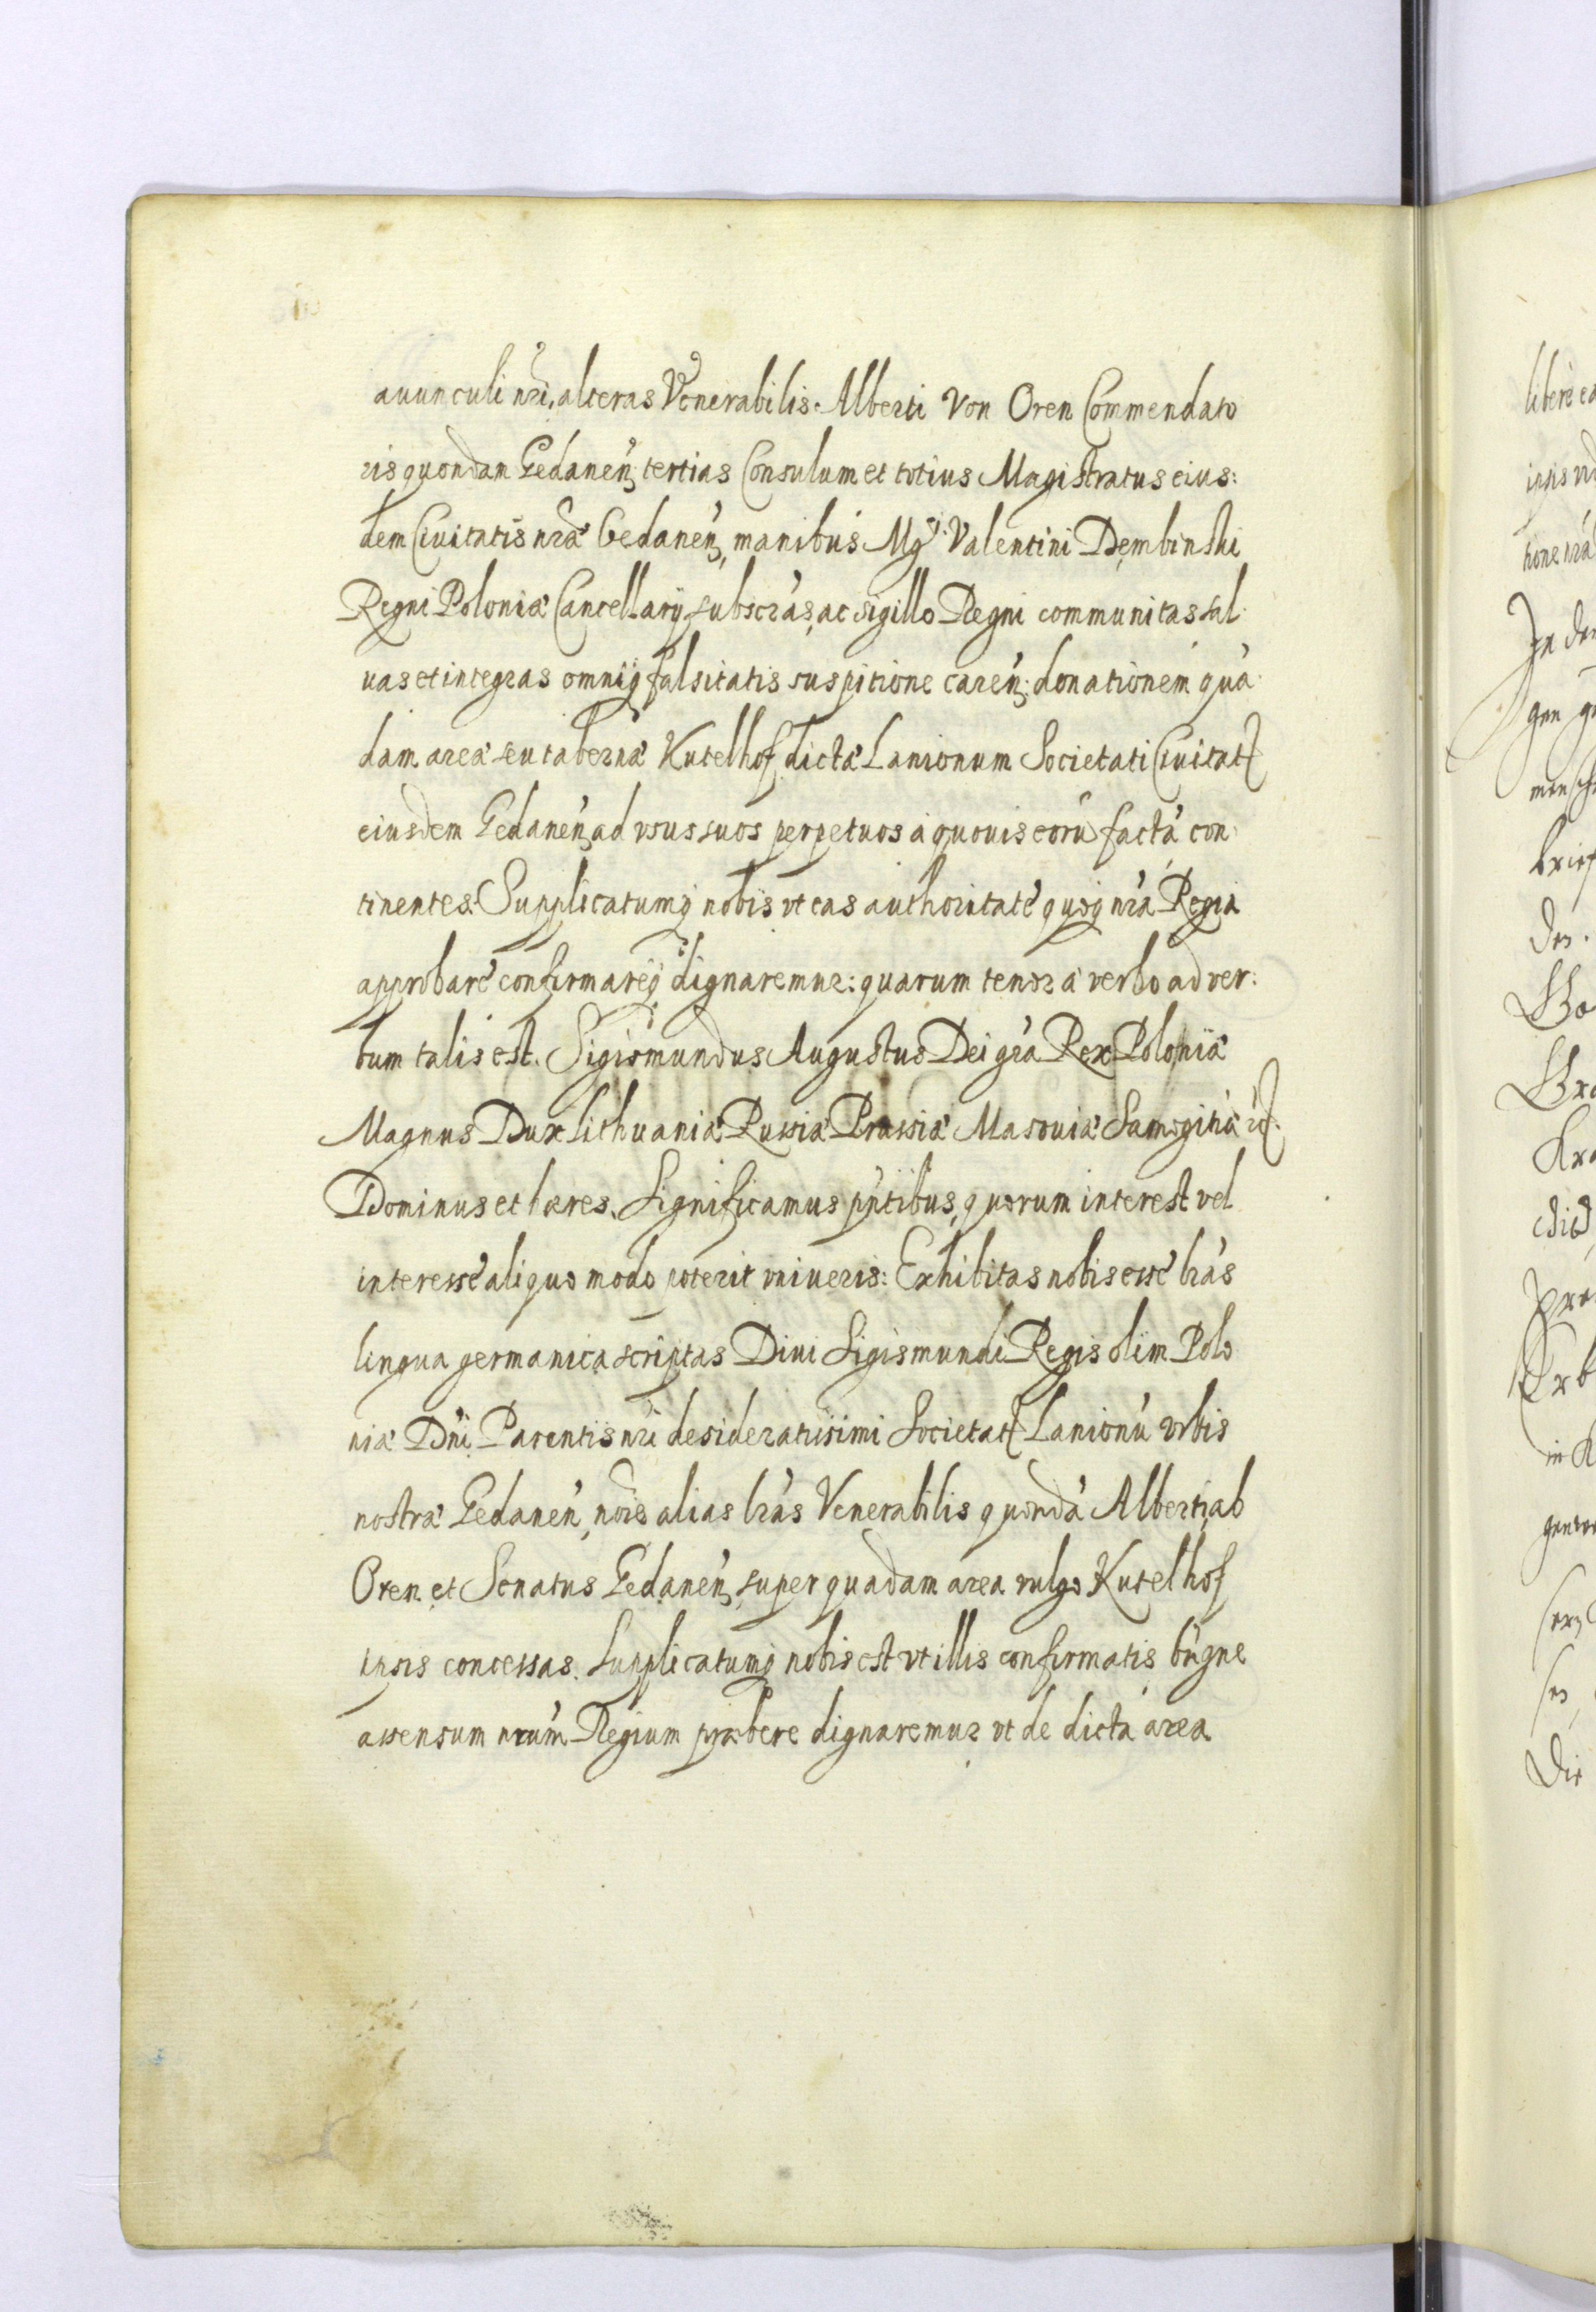 auunculi nri, alteras Venerabilis Alberti Von Oren Commendato
ris quondam Gedanen̄ tertias Consulum et totius Magistratus eius:
dem Ciuitatis nræ Gedanen̄, manibus Mgci: Valentini Dembinski
Regni Poloniæ Cancellarij subscrâs, ac sigillo Regni communitas sal
uas et integras omniq̨ falsitatis suspitione caren̄: donationem quâ
dam areæ seu tabernæ Kutelhof dictæ Lanionum Societati Ciuitatꝭ
eiusdem Gedanen̄ ad vsus suos perpetuos à quouis eorû factâ con
tinentes. Supplicatumq̨ nobis vt eas authoritate quoq̨ nrâ Regia
approbare confirmareq̨ dignaremur: quarum tenor à verbo ad ver:
bum talis est. Sigismundus Augustus Dei grâ Rex Poloniæ
Magnus Dux Lithuaniæ Russiæ Prussiæ Masouiæ Samogitiæ ꝛcꝭ.
Dominus et hæres. Significamus pñtibus, quorum interest vel
interesse aliquo modo poterit vniueris: Exhibitas nobis esse lrâs
lingua germanica scriptas Diui Sigismundi Regis olim Polo
niæ Dñi Parentis nri desideratissimi Societatꝭ Lanionû vrbis
nostræ Gedanen̄, nõie alias lrâs Venerabilis quondâ Alberti ab
Oren et Senatus Gedanen̄ super quadam area vulgo Kutelhof
ipsis concessas. Supplicatumq̨ nobis est vt illis confirmatis bñgne
assensum nrûm Regium præbere dignaremur vt de dicta area